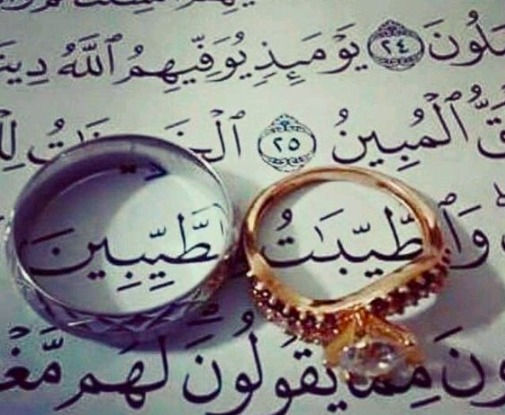 ـلُونَ ٢٤ يَوْمَئِذٍ يُوَفِّيهِمُ ٱللَّهُ دِينَـ
ـقُّ ٱلْمُبِينُ ٢٥
وَٱلطَّيِّبَٰتُ لِلطَّيِّبِينَ
ـونَ مِمَّا يَقُولُونَ لَهُم مَّغْـ